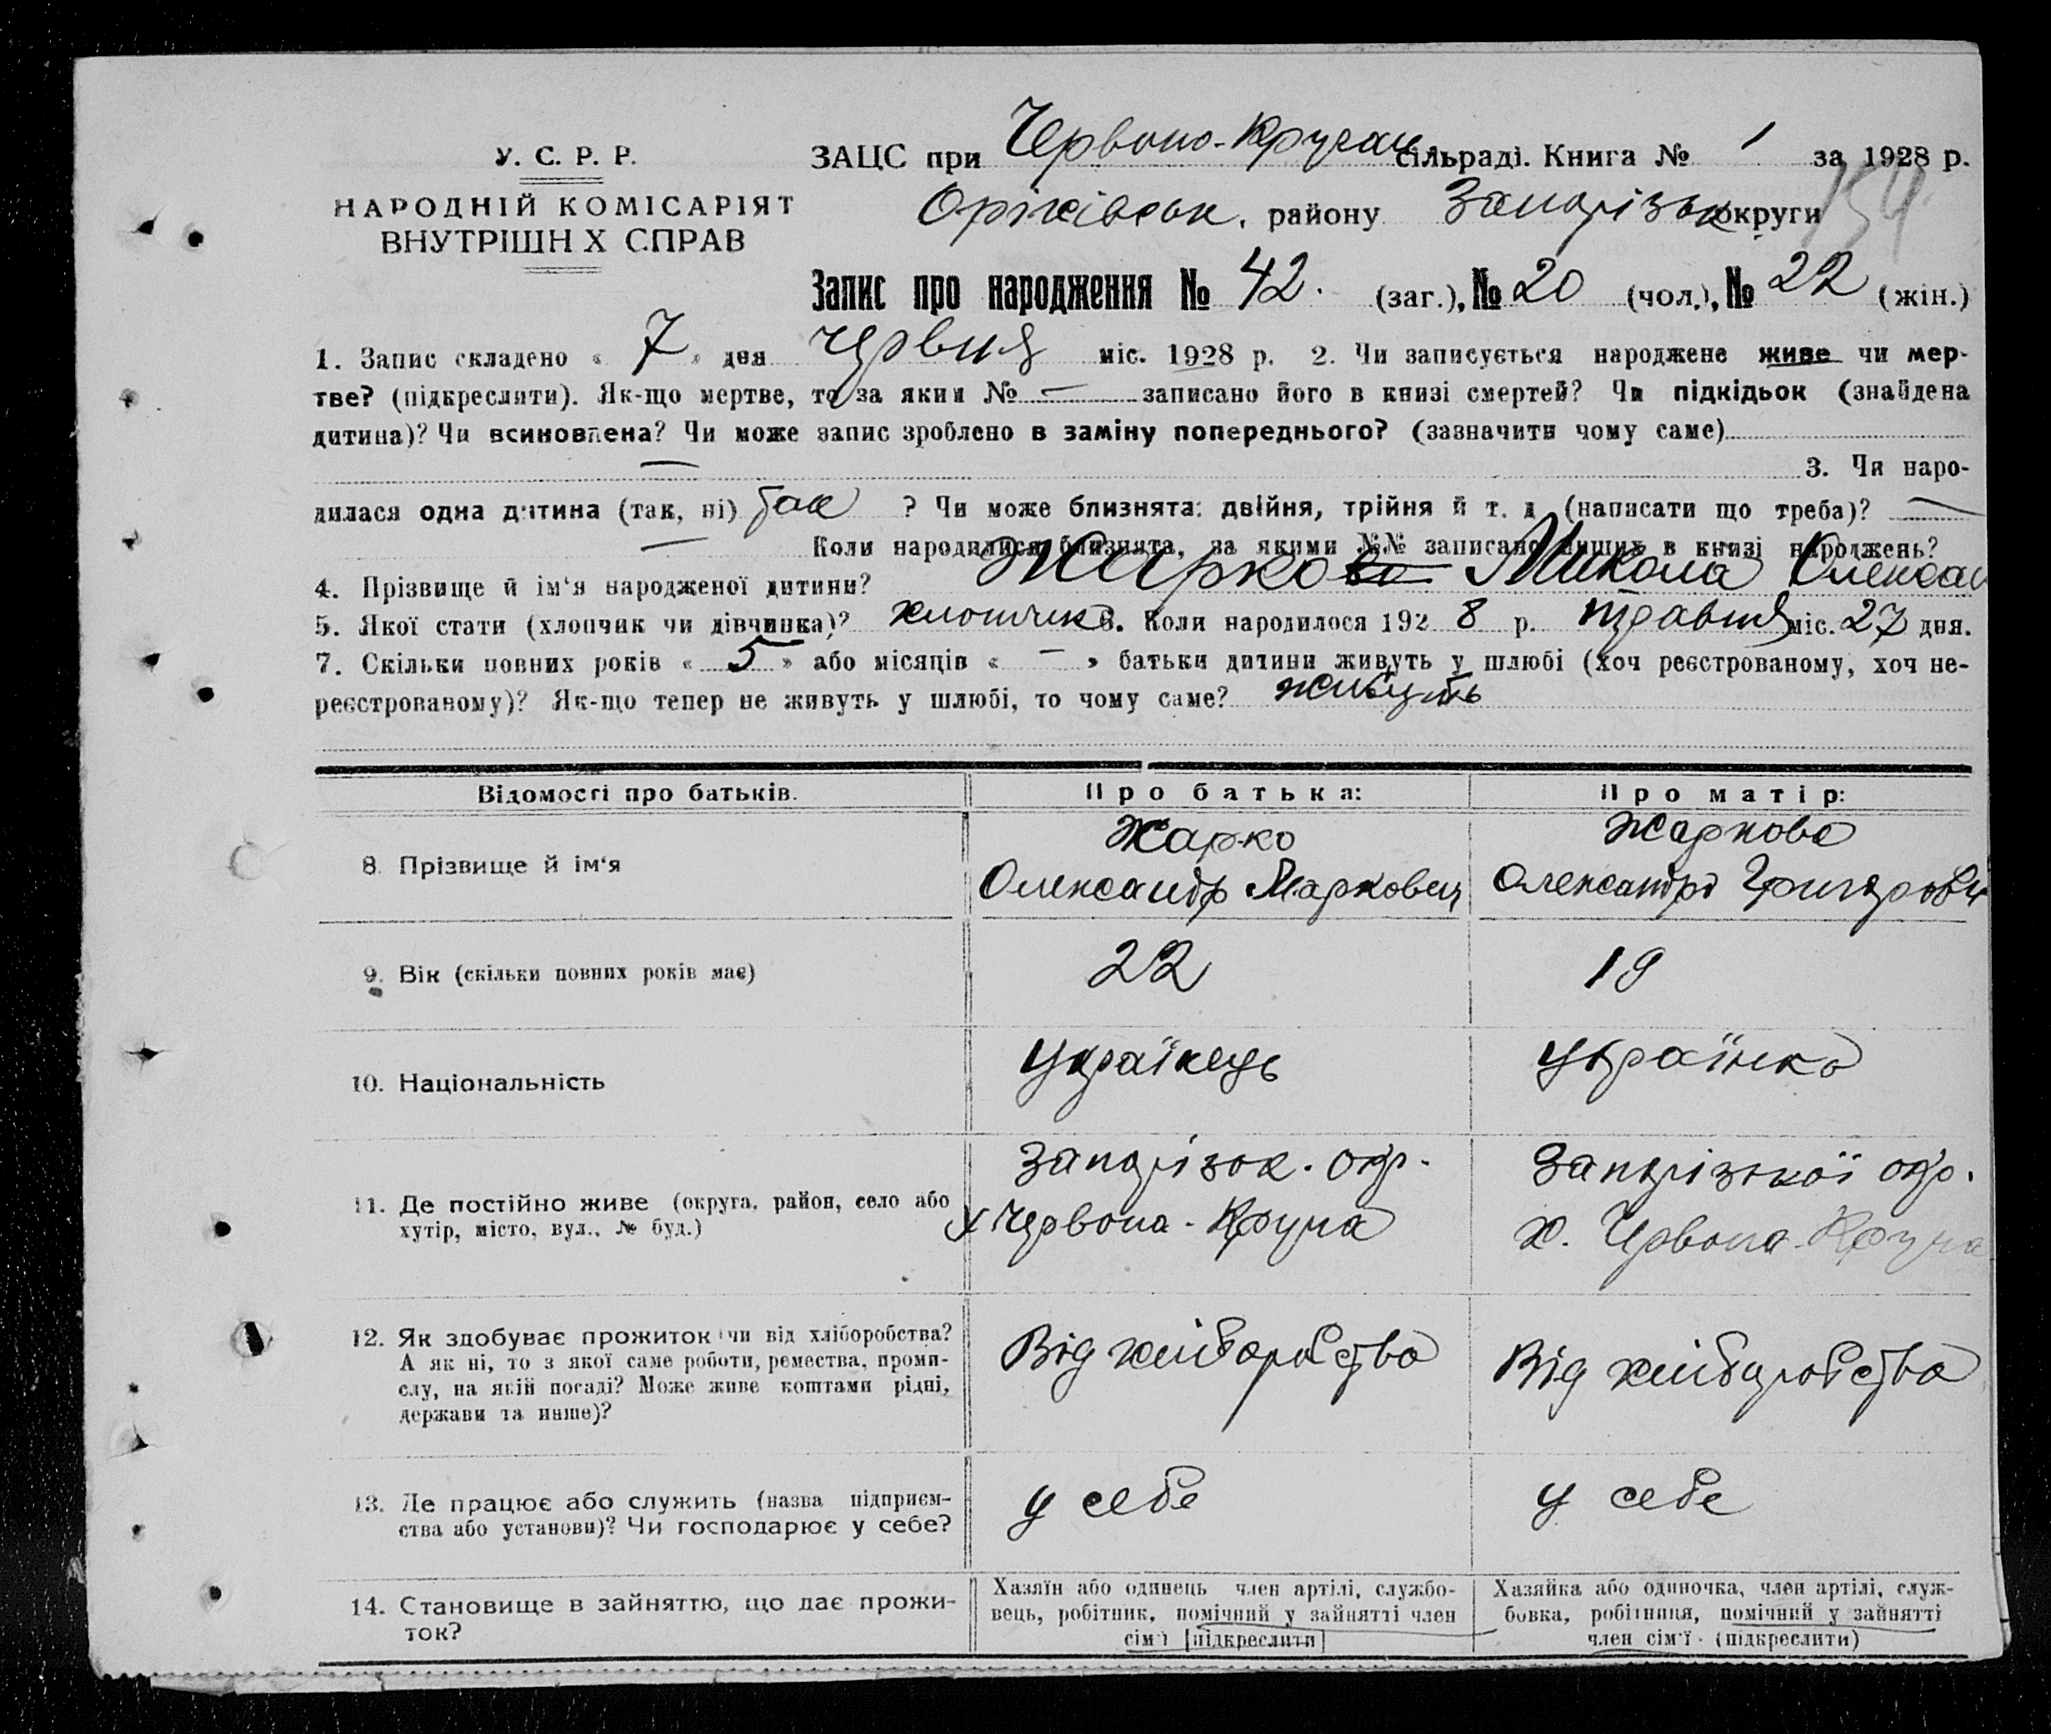 У. С. Р. Р.
НАРОДНІЙ КОМІСАРІЯТ
ВНУТРІШН Х СПРАВ
ЗАЦС при Червоно-Кручан. сільраді. Книга № 1 за 1928 р.
Оріхівськ. району Запорізьк округи
154
Запис про народження № 42. (заг.), № 20 (чол.), № 22 (жін.)
1. Запис складено « 7 » дня червня міс. 1928 р. 2. Чи записується народжене живе чи мер-
тве? (підкреслити). Як-що мертве, то за яким № — записано його в книзі смертей? Чи підкідьок (знайдена
дитина)? Чи всиновлена? Чи може запис зроблено в заміну попереднього? (зазначити чому саме)
— 3. Чи наро-
дилася одна дитина (так, ні) так ? Чи може близнята: двійня, трійня й т. д (написати що треба)? —
— Коли народилися близнята, за якими №№ записано инших в книзі народжень?
4. Прізвище й ім‘я народженої дитини? Жаркова Микола Олексан
5. Якої стати (хлопчик чи дівчинка)? хлопчик 6. Коли народилося 192 8 р. травня міс. 27 дня.
7. Скільки повних років « 5 » або місяців « — » батьки дитини живуть у шлюбі (хоч реєстрованому, хоч не-
реєстрованому)? Як-що тепер не живуть у шлюбі, то чому саме? живуть
Відомості про батьків. Про батька: Про матір:
8. Прізвище й ім‘я Жарко Жаркова
Олександр Маркович Олександра Григорович
9. Вік (скільки повних років має) 22 19
10. Національність Українець Українка
11. Де постійно живе (округа, район, село або Запорізьк. окр. Запорізької окр.
хутір, місто, вул., № буд.) х Червона-Круча х. Червона-Круча
12. Як здобуває прожиток чи від хліборобства? Від хліборобства Від хліборобства
А як ні, то з якої саме роботи, ремества, проми-
слу, на якій посаді? Може живе коштами рідні,
держави та инше)?
13. Де працює або служить (назва підприєм- у себе у себе
ства або установи)? Чи господарює у себе?
14. Становище в зайняттю, що дає прожи-
ток?
Хазяїн або одинець член артілі, службо-
вець, робітник, помічний у зайнятті член
сім'ї [підкреслити]
Хазяйка або одиночка, член артілі, служ-
бовка, робітниця, помічний у зайнятті
член сім'ї (підкреслити)